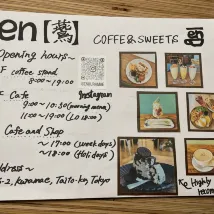 en【鶯】 COFFEE & SWEETS
Opening hours~
F coffee stand
8:00~19:00
Instagram
F Cafe
9:00~10:30 (morning menu)
11:00~19:00 (LO 18:00)
Cafe and Shop
~19:00 (week days)
~18:00 (Holidays)
Address~
Taito-ku, Tokyo
Highly